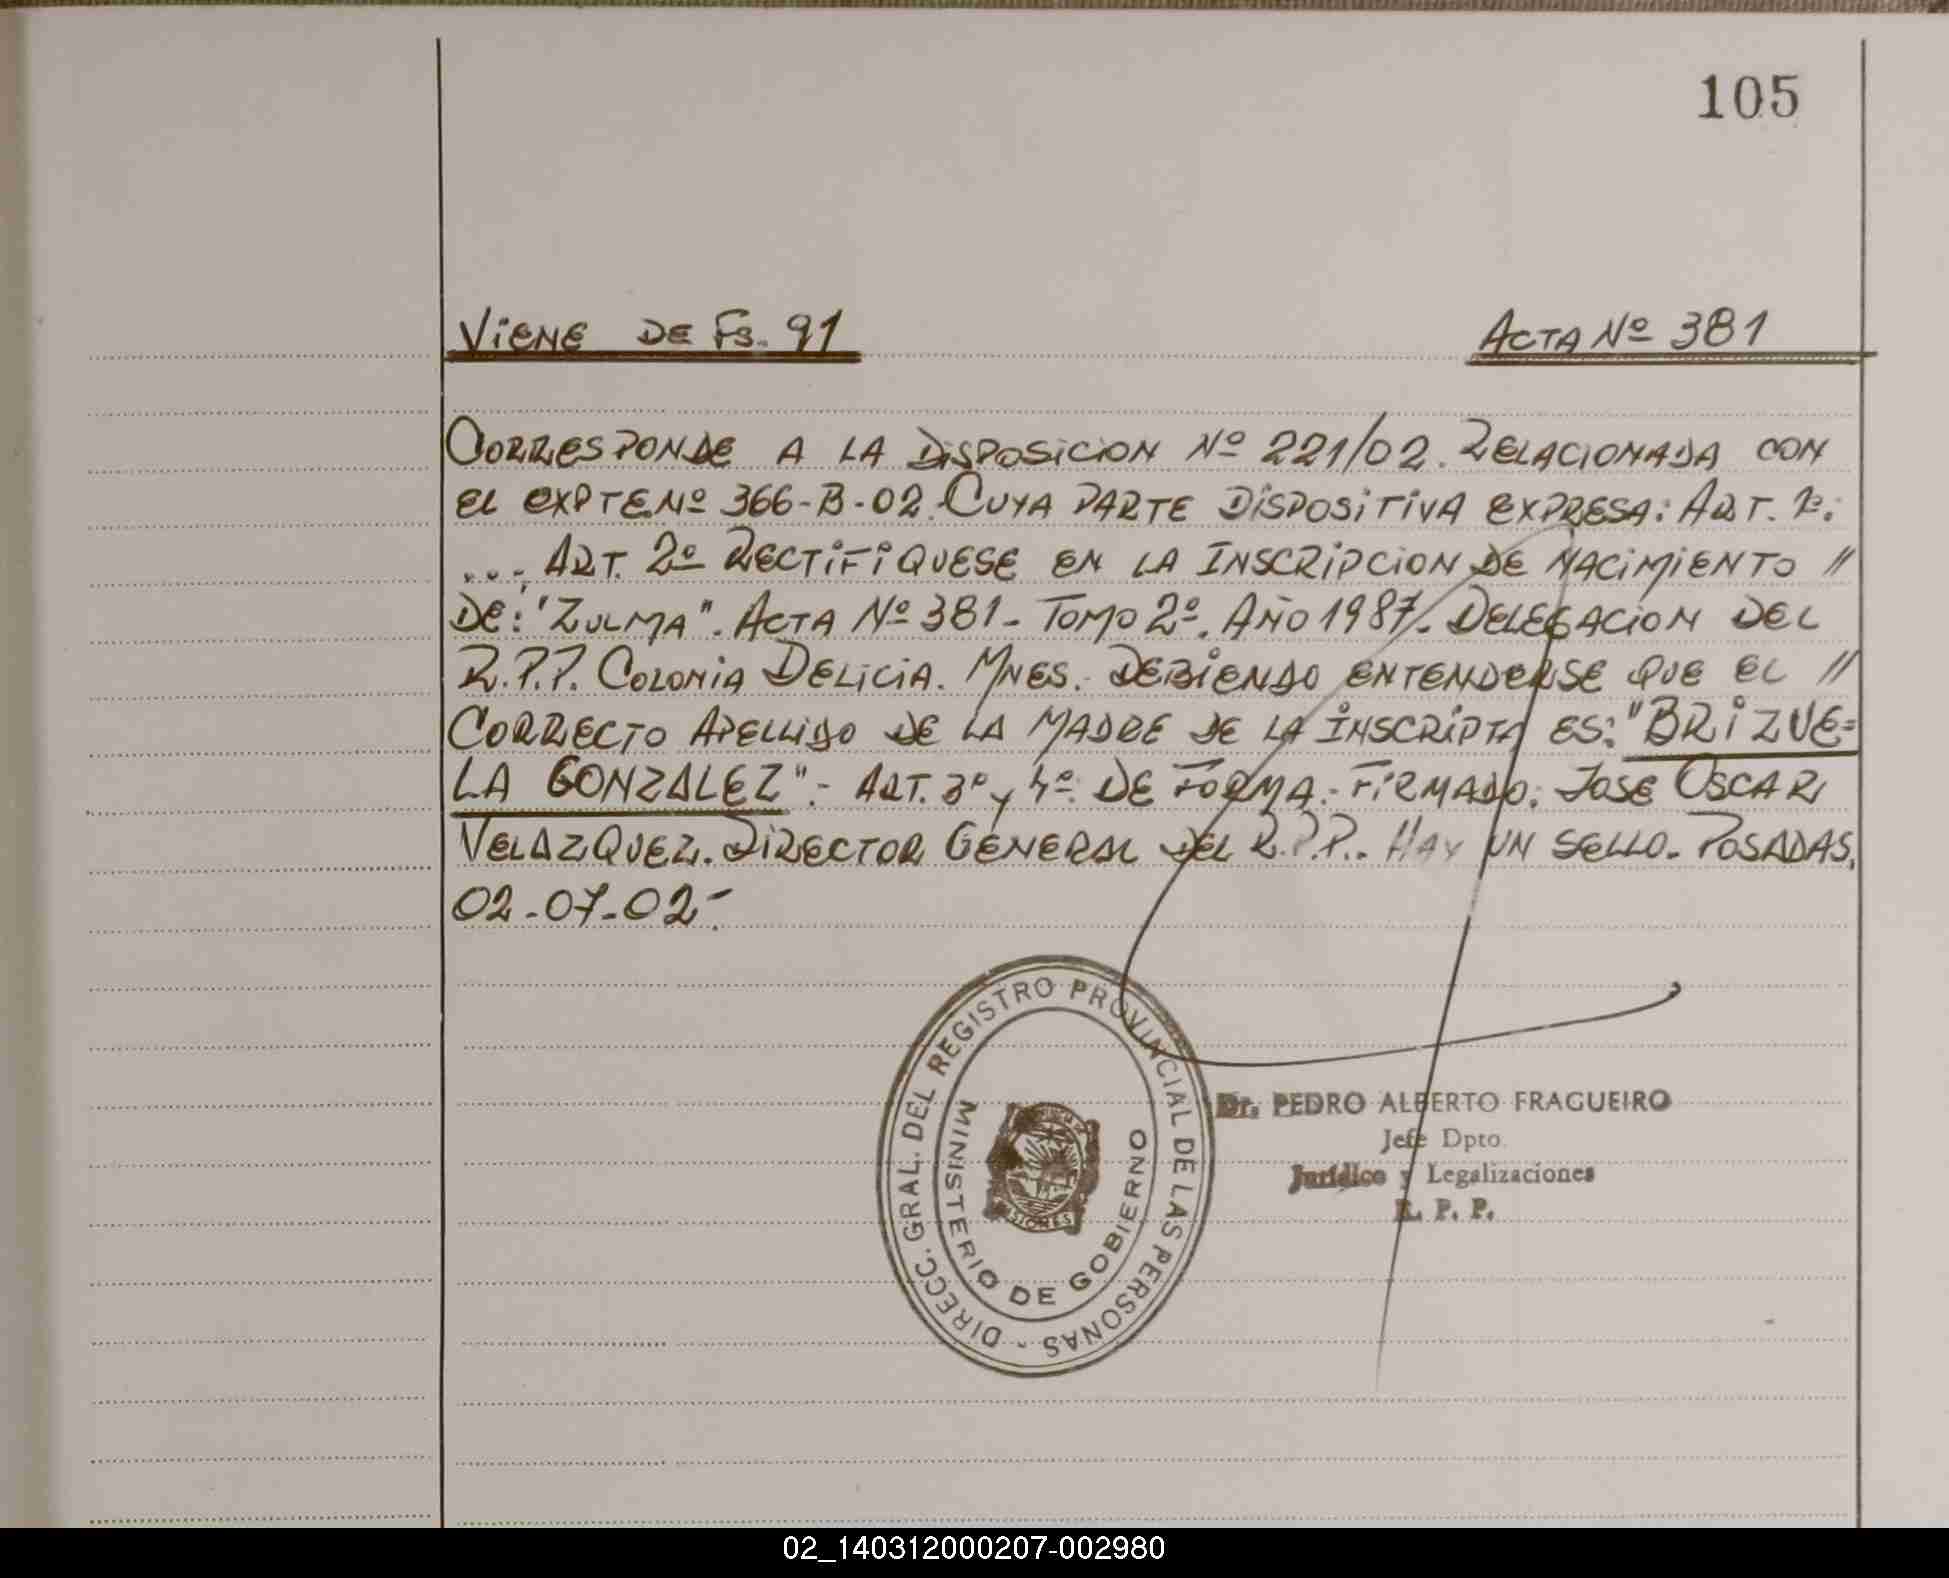 105
VIENE DE FS. 91 ACTA Nº 381
CORRESPONDE A LA DISPOSICION Nº 221/02. RELACIONADA CON
EL EXPTE Nº 366-B-02. CUYA PARTE DISPOSITIVA EXPRESA: ART. 1º:
...- ART. 2º RECTIFIQUESE EN LA INSCRIPCION DE NACIMIENTO //
DE: "ZULMA". ACTA Nº 381- TOMO 2º. AÑO 1987. DELEGACION DEL
R.P.P. COLONIA DELICIA. MNES. DEBIENDO ENTENDERSE QUE EL //
CORRECTO APELLIDO DE LA MADRE DE LA INSCRIPTA ES: "BRIZUE=
LA GONZALEZ".- ART. 3º y 4º. DE FORMA.- FIRMADO. JOSE OSCAR
VELAZQUEZ. DIRECTOR GENERAL DEL R.P.P.. HAY UN SELLO. POSADAS,
02-07-02-.
DIRECC. GRAL. DEL REGISTRO PROVINCIAL DE LAS PERSONAS -
MINISTERIO DE GOBIERNO
MISIONES
Dr. PEDRO ALBERTO FRAGUEIRO
Jefe Dpto.
Jurídico y Legalizaciones
R. P. P.
02_140312000207-002980